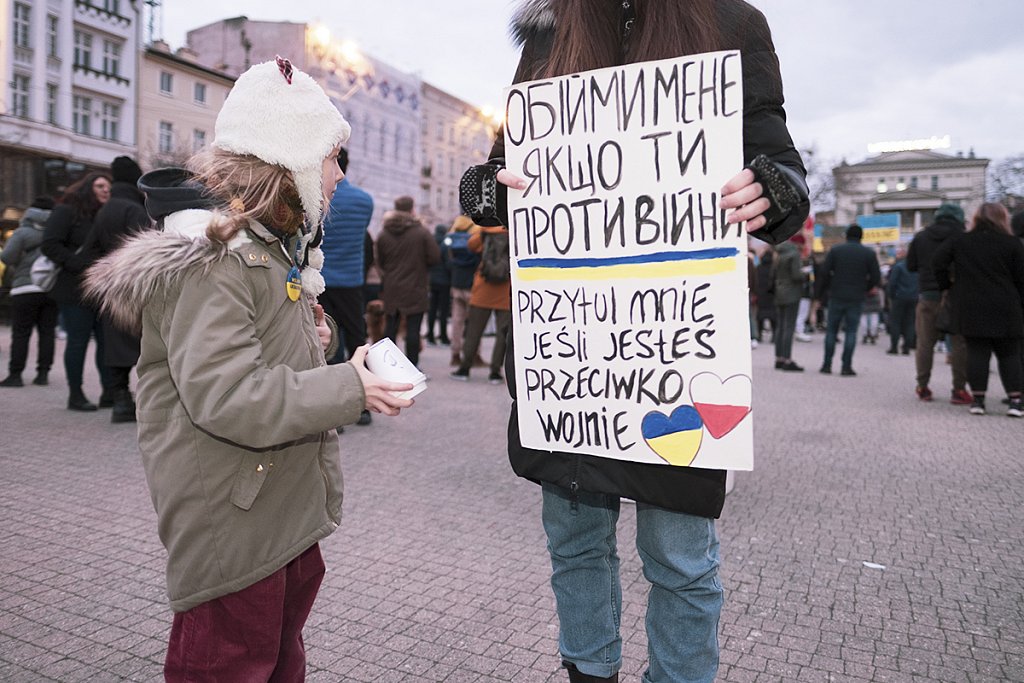 ОБІЙМИ МЕНЕ
ЯКЩО ТИ
ПРОТИ ВІЙНИ
PRZYTUL MNIE
JEŚLI JESTEŚ
PRZECIWKO
WOJNIE